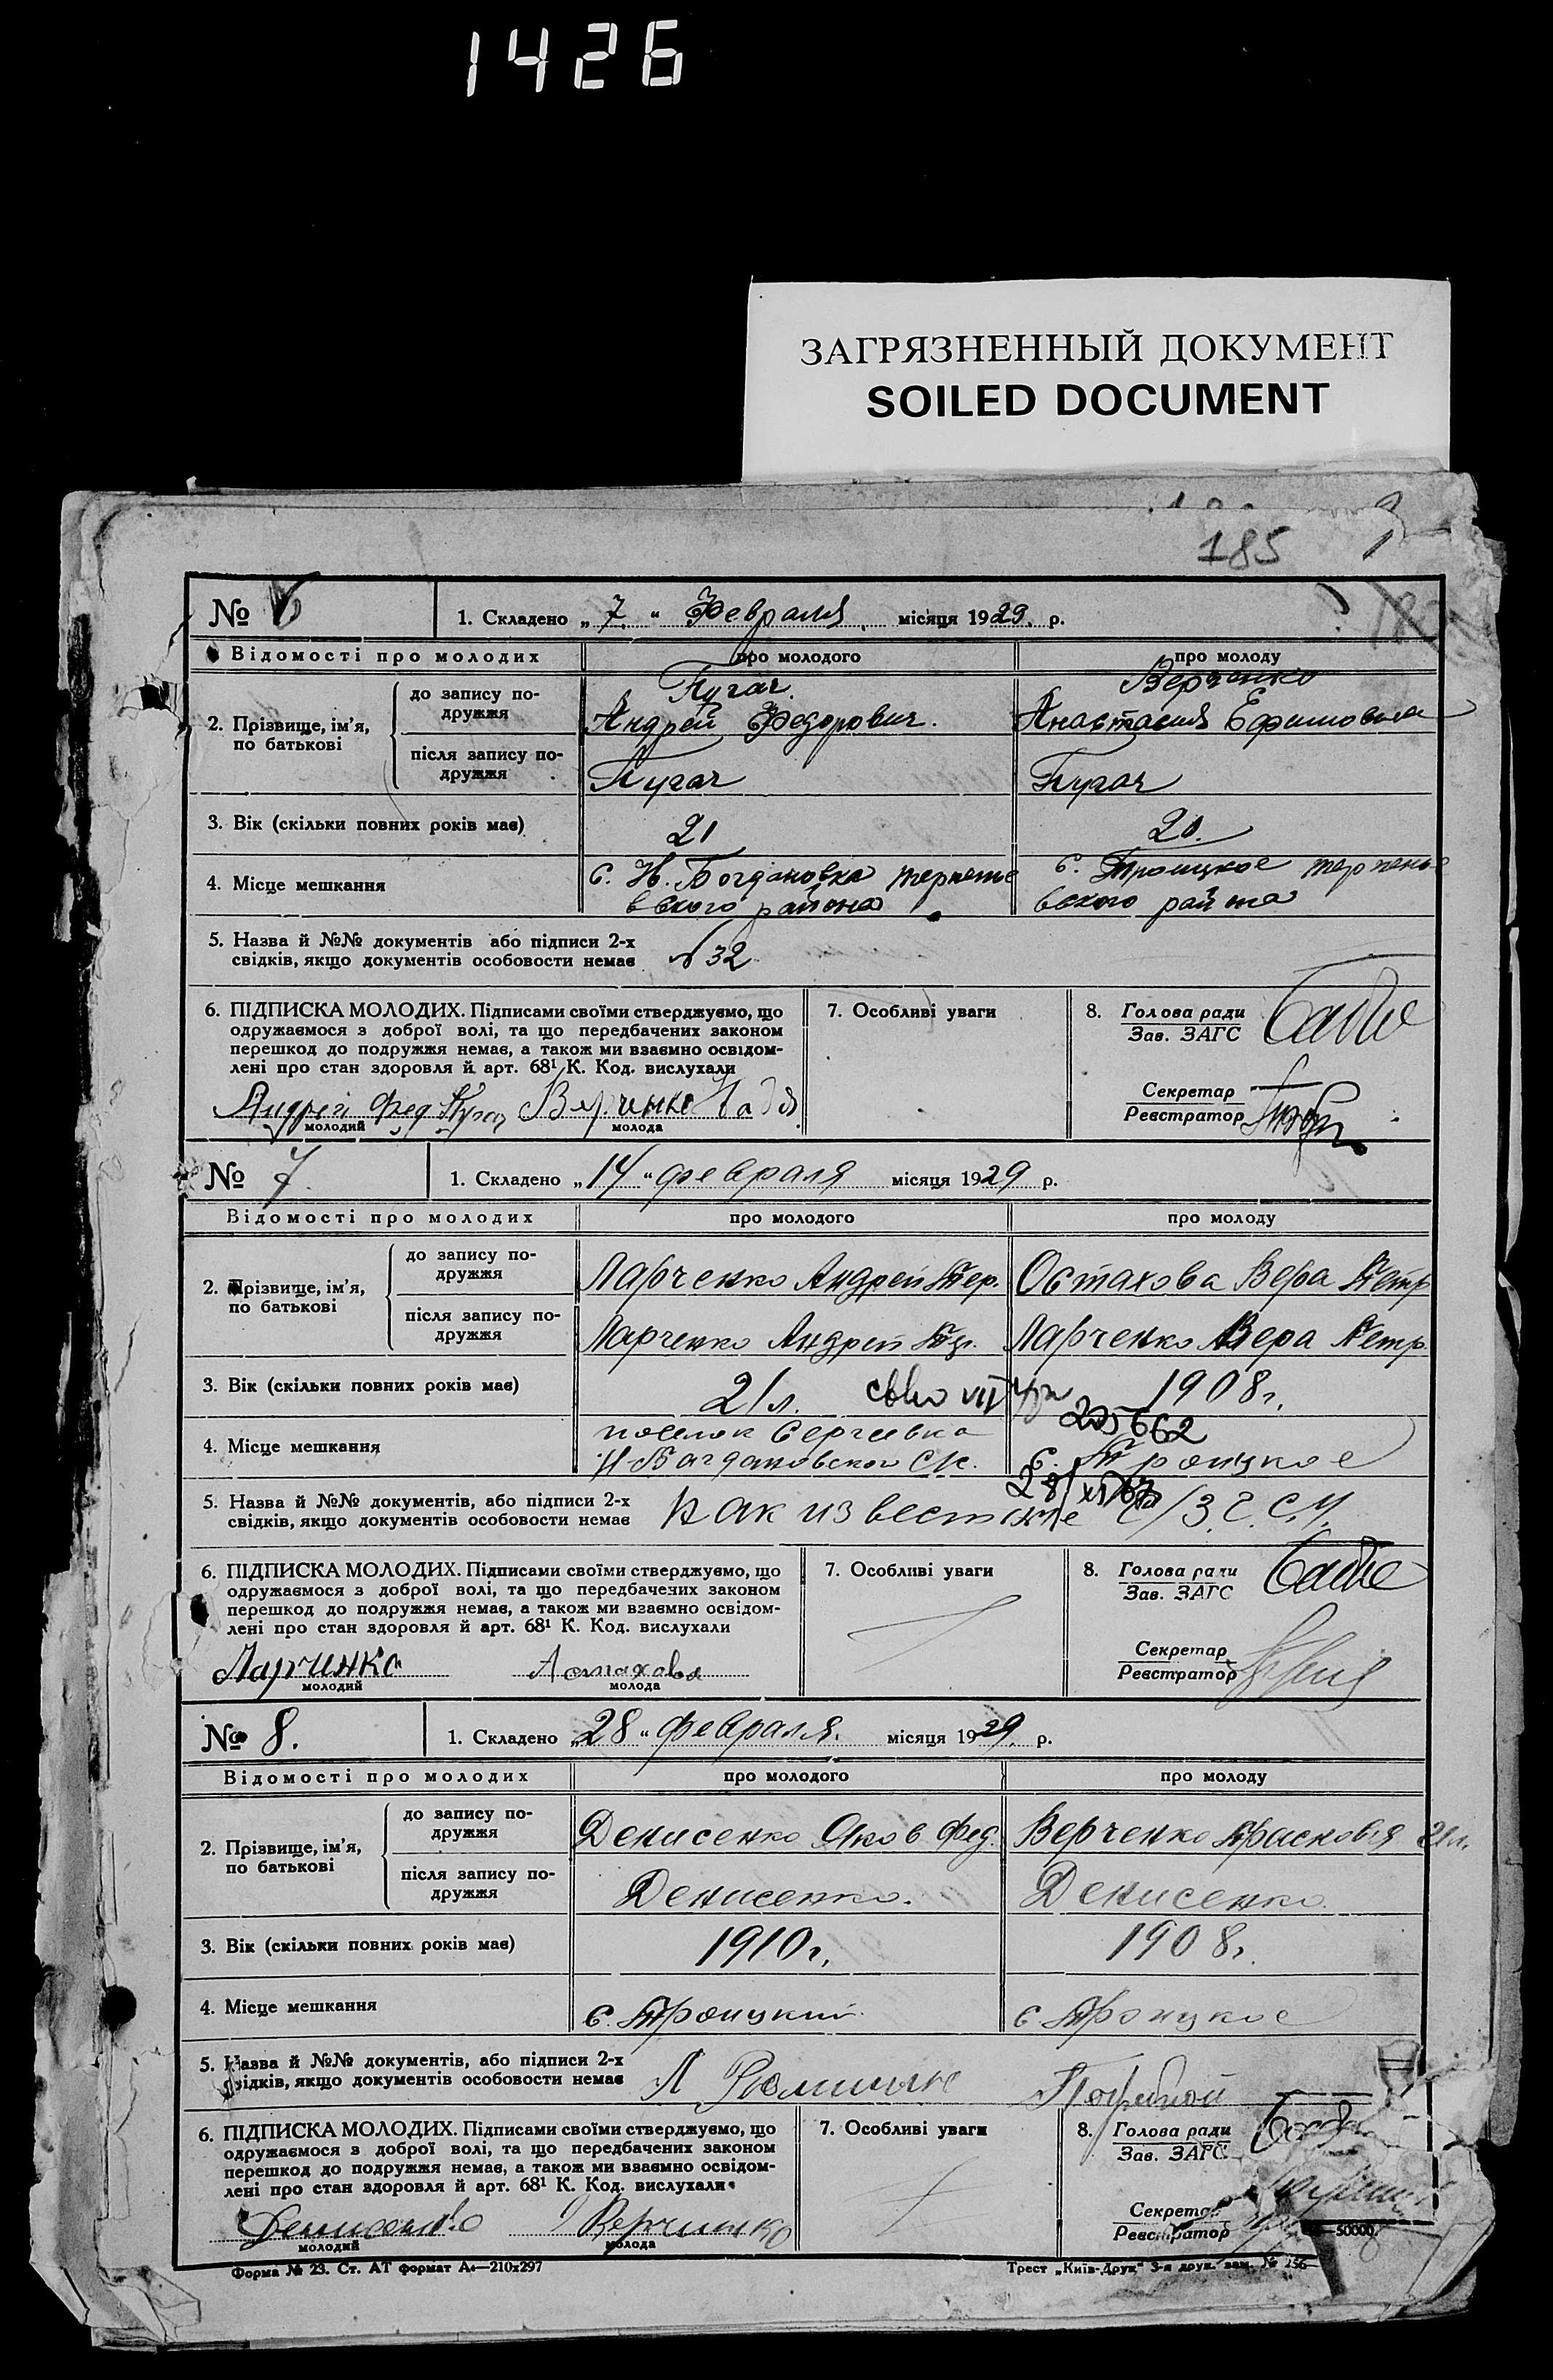 1426
ЗАГРЯЗНЕННЫЙ ДОКУМЕНТ
SOILED DOCUMENT
185
№ 6 1. Складено „7.“ Февраля місяця 1929. р.
Відомості про молодих про молодого про молоду
2. Прізвище, ім’я, по батькові
до запису по-дружжя Пугач Андрей Федорович. Верченко Анастасия Ефимовна
після запису по-дружжя Пугач Пугач
3. Вік (скільки повних років має) 21 20.
4. Місце мешкання с. Н. Богдановка терпенье с. Троицкое терпень
вского района вского района
5. Назва й №№ документів або підписи 2-х
свідків, якщо документів особовости немає №32
6. ПІДПИСКА МОЛОДИХ. Підписами своїми стверджуємо, що
одружаємося з доброї волі, та що передбачених законом
перешкод до подружжя немає, а також ми взаємно освідом-
лені про стан здоровля й арт. 68¹ К. Код. вислухали
Андрей Фед Пугач Верченко
молодий молода
7. Особливі уваги
8. Голова ради
Зав. ЗАГС
Секретар
Реєстратор
№ 7. 1. Складено „14“ февраля місяця 1929 р.
Відомості про молодих про молодого про молоду
2. Прізвище, ім’я, по батькові
до запису по-дружжя Ларченко Андрей Остахова Вера Петр
після запису по-дружжя Ларченко Андрей Ларченко Вера Петр.
3. Вік (скільки повних років має) 21л. 1908г.
4. Місце мешкання поселок Сергеевка с. Троицкое
Н-Богдановского С/С.
5. Назва й №№ документів, або підписи 2-х
свідків, якщо документів особовости немає Как известные
6. ПІДПИСКА МОЛОДИХ. Підписами своїми стверджуємо, що
одружаємося з доброї волі, та що передбачених законом
перешкод до подружжя немає, а також ми взаємно освідом-
лені про стан здоровля й арт. 68¹ К. Код. вислухали
Ларченко Астахова
молодий молода
7. Особливі уваги
8. Голова ради
Зав. ЗАГС
Секретар
Реєстратор
№ 8. 1. Складено „28“ февраля. місяця 1929. р.
Відомості про молодих про молодого про молоду
2. Прізвище, ім’я, по батькові
до запису по-дружжя Денисенко Яков Фед. Верченко Прасковья
після запису по-дружжя Денисенко. Денисенко.
3. Вік (скільки повних років має) 1910г. 1908г.
4. Місце мешкання с. Троицкий с. Троицкое
5. Назва й №№ документів, або підписи 2-х
свідків, якщо документів особовости немає
6. ПІДПИСКА МОЛОДИХ. Підписами своїми стверджуємо, що
одружаємося з доброї волі, та що передбачених законом
перешкод до подружжя немає, а також ми взаємно освідом-
лені про стан здоровля й арт. 68¹ К. Код. вислухали
Денисенко Верченко
молодий молода
7. Особливі уваги
8. Голова ради
Зав. ЗАГС
Секретар
Реєстратор
50000.
Форма № 23. Ст. АТ формат А₄—210х297 Трест „Київ-Друк“ 3-я друк. зам. № 256